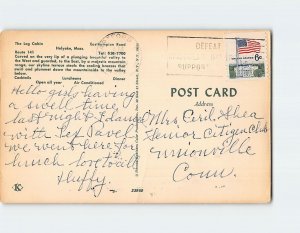 The Log Cabin Easthampton Road
Holyoke, Mass.
Route 141 Tel: 538-7700
Carved on the very lip of a plunging beautiful valley to
the West and guarded, to the East, by a majestic mountain
range, our skyline terrace smells the cooling breezes that
swirl and plummet down the mountainside to the valley
below.
Cocktails Luncheons Dinner
Open all year Air Conditioned
DEFEAT
SUPPORT
6c
POST CARD
Address
Hello girls having
a swell time
last night
with
we went here for
lunch love to all
Fluffy.
Mrs Cecil Shea
Senior Citizen Club
Unionville
Conn.
K